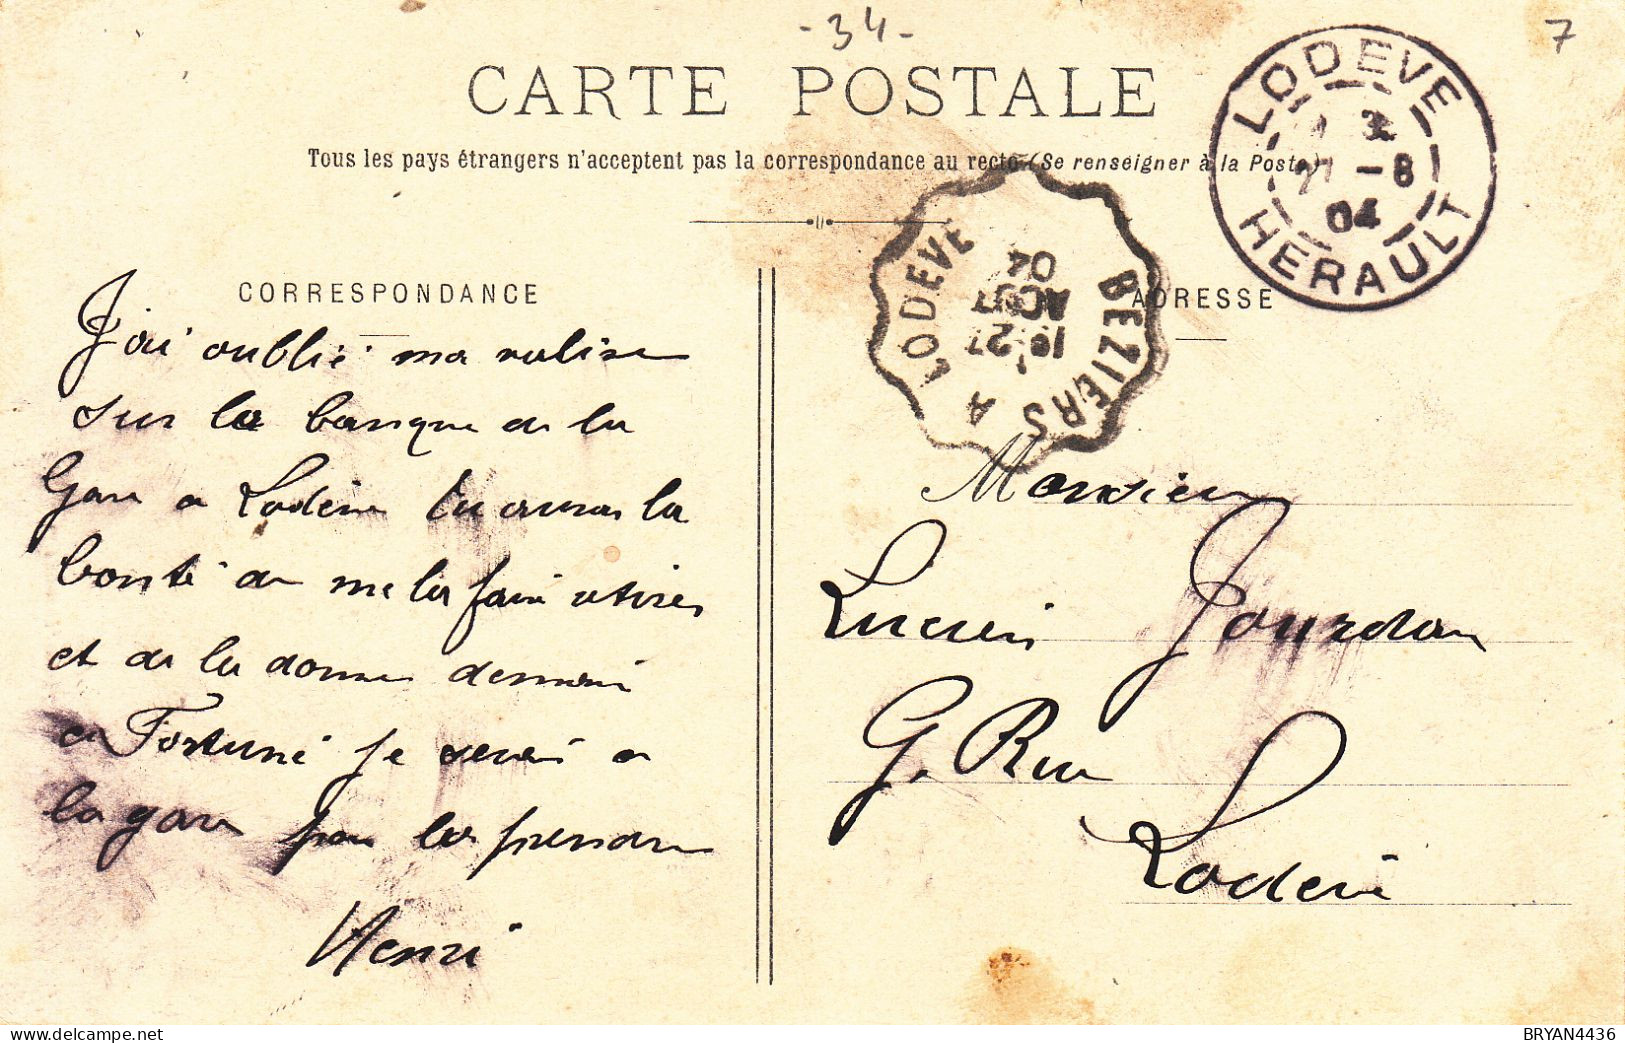 - 34 -
7
CARTE POSTALE
Tous les pays étrangers n'acceptent pas la correspondance au recto (Se renseigner à la Poste)
LODEVE
-8
04
HERAULT
BEZIERS A LODEVE
27
AOUT
04
CORRESPONDANCE
J'ai oublié ma valise
sur la banque de la
Gare a Lodève tu auras la
bonté de me la faire retirer
et de la donner demain
a Fortuné je serai a
la gare pour la prendre
Henri
ADRESSE
Monsieur
Lucien Jourdan
G. Rue
Lodève
BRYAN4436